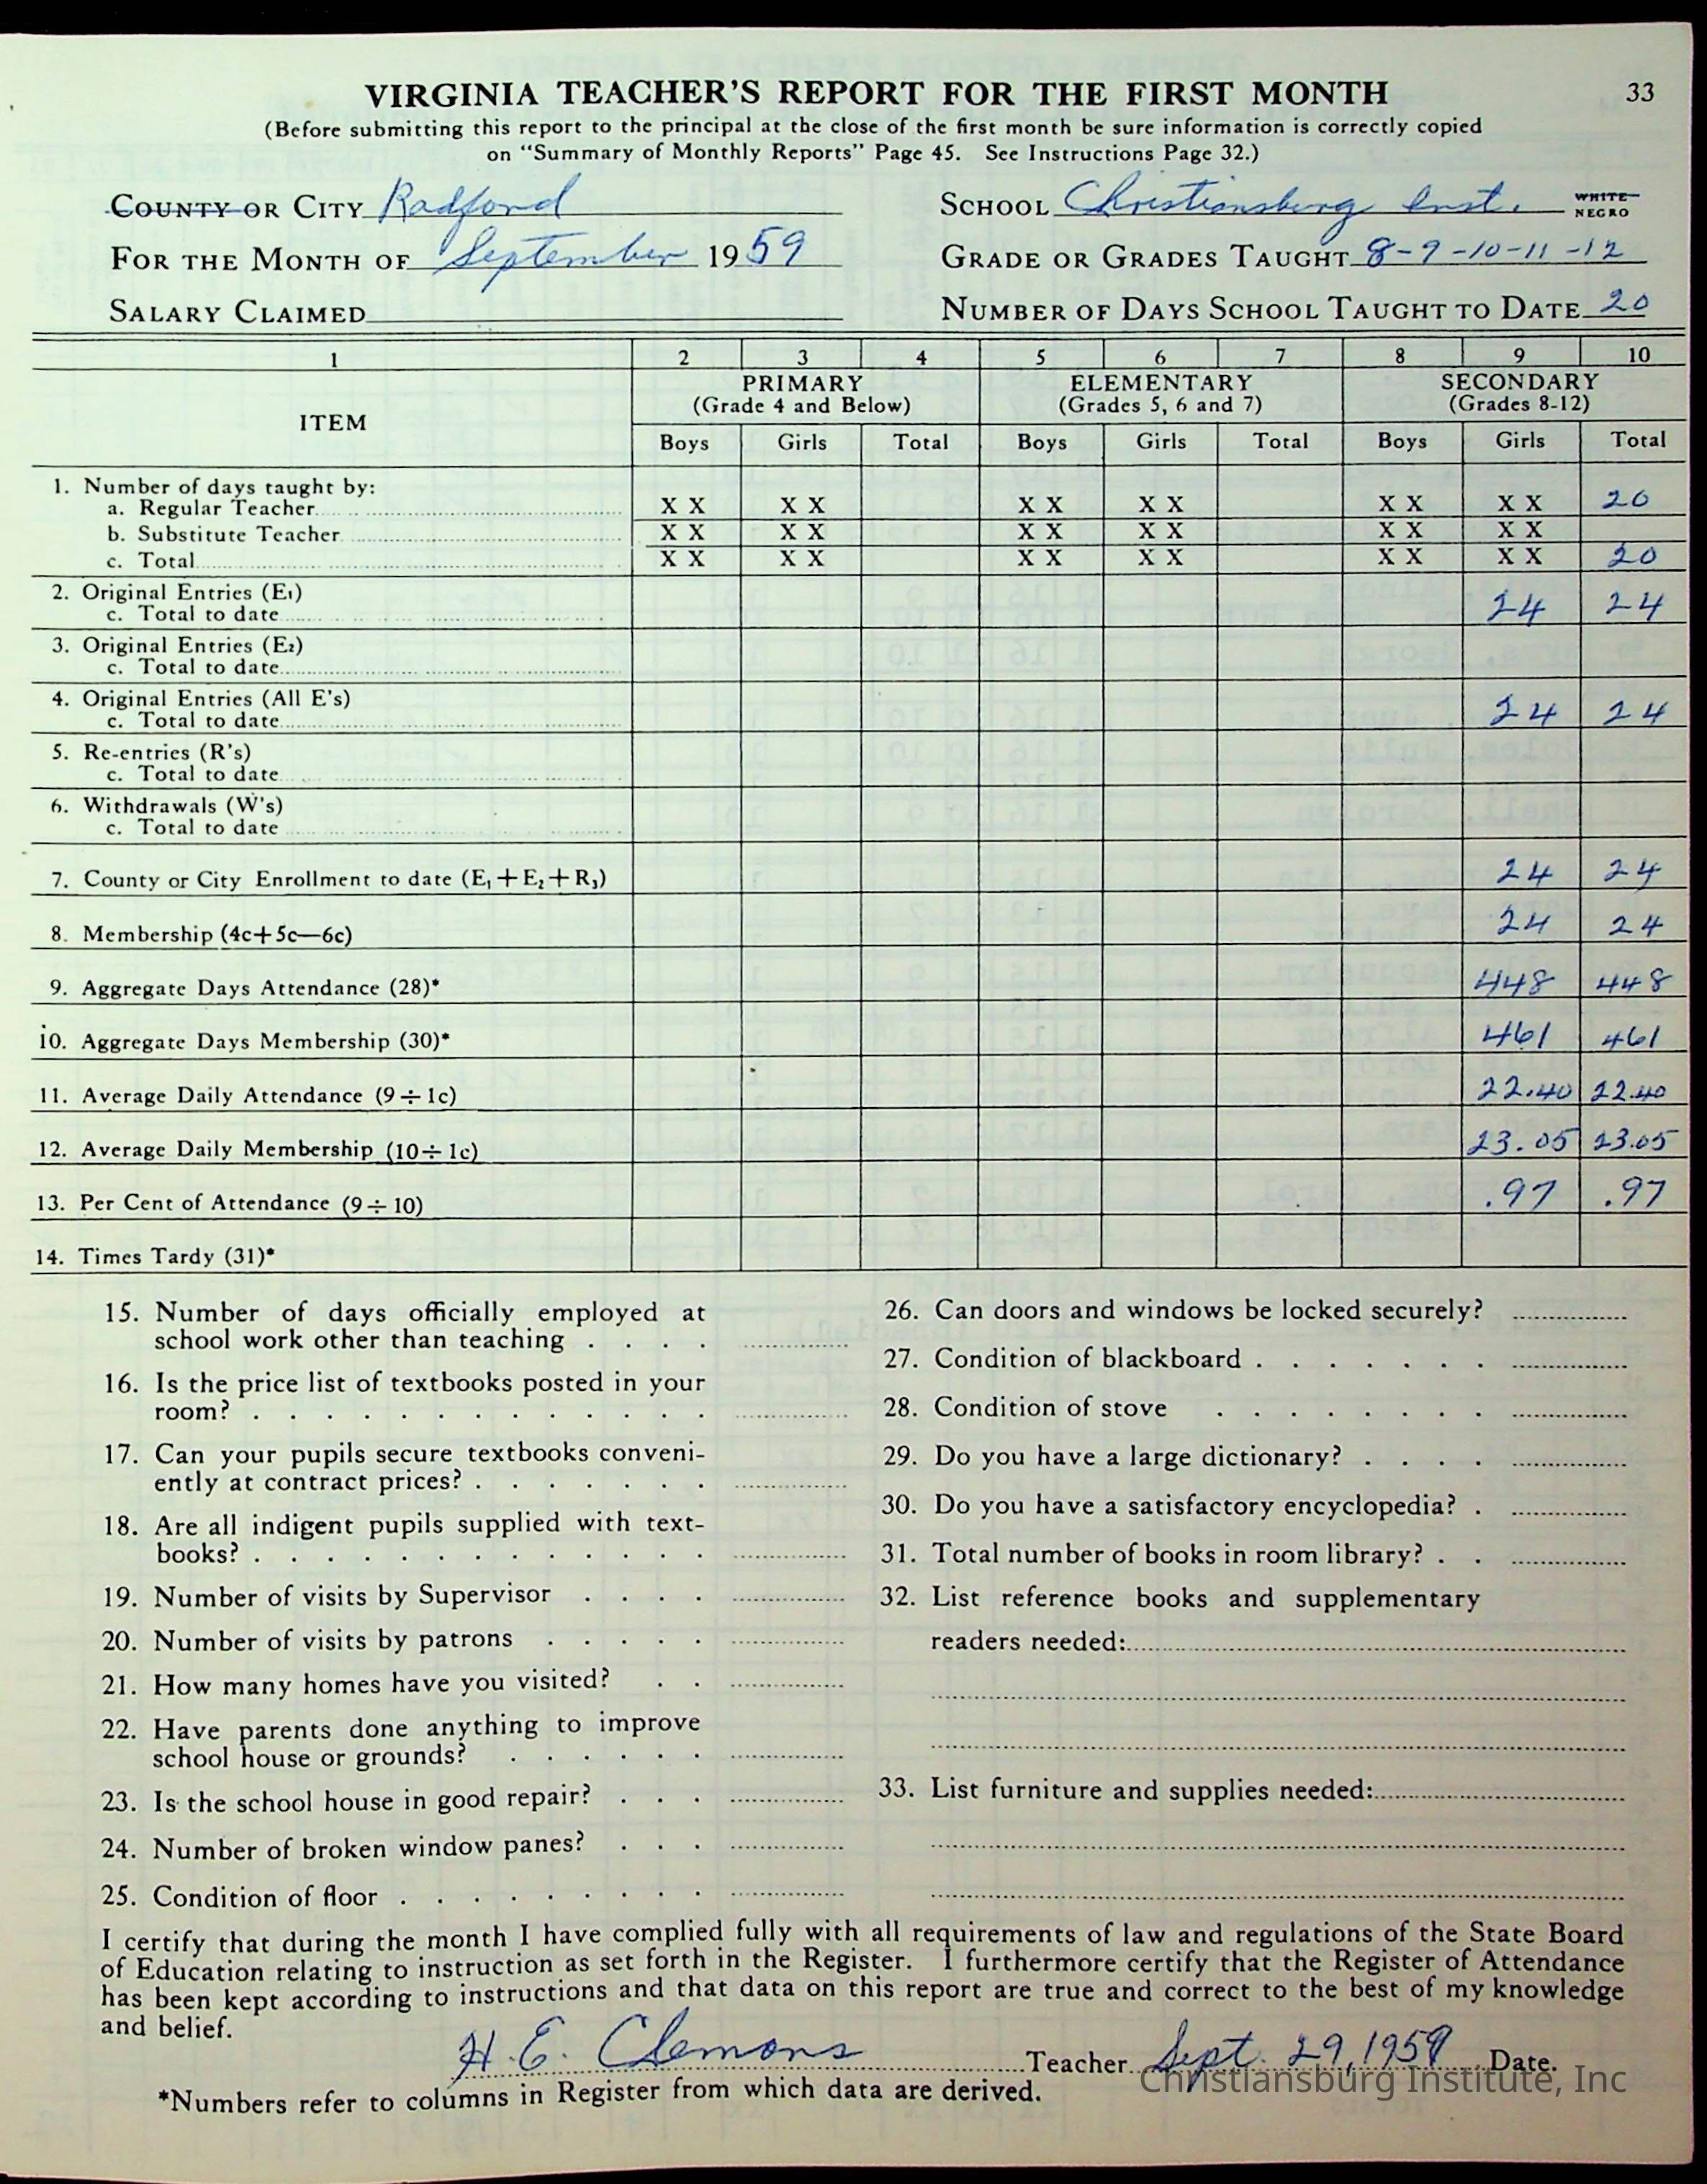 VIRGINIA TEACHER'S REPORT FOR THE FIRST MONTH 33
(Before submitting this report to the principal at the close of the first month be sure information is correctly copied
on "Summary of Monthly Reports" Page 45. See Instructions Page 32.)
COUNTY OR CITY Radford SCHOOL Christiansburg Inst. WHITE NEGRO
FOR THE MONTH OF September 1959 GRADE OR GRADES TAUGHT 8-9-10-11-12
SALARY CLAIMED NUMBER OF DAYS SCHOOL TAUGHT TO DATE 20
1 2 3 4 5 6 7 8 9 10
ITEM PRIMARY (Grade 4 and Below) ELEMENTARY (Grades 5, 6 and 7) SECONDARY (Grades 8-12)
Boys Girls Total Boys Girls Total Boys Girls Total
1. Number of days taught by:
a. Regular Teacher X X X X X X X X X X X X 20
b. Substitute Teacher X X X X X X X X X X X X
c. Total X X X X X X X X X X X X 20
2. Original Entries (E1)
c. Total to date 24 24
3. Original Entries (E2)
c. Total to date
4. Original Entries (All E's)
c. Total to date 24 24
5. Re-entries (R's)
c. Total to date
6. Withdrawals (W's)
c. Total to date
7. County or City Enrollment to date (E1+E2+R3) 24 24
8. Membership (4c+5c—6c) 24 24
9. Aggregate Days Attendance (28)* 448 448
10. Aggregate Days Membership (30)* 461 461
11. Average Daily Attendance (9÷1c) 22.40 22.40
12. Average Daily Membership (10÷1c) 23.05 23.05
13. Per Cent of Attendance (9÷10) .97 .97
14. Times Tardy (31)*
15. Number of days officially employed at
school work other than teaching
16. Is the price list of textbooks posted in your
room?
17. Can your pupils secure textbooks conveni-
ently at contract prices?
18. Are all indigent pupils supplied with text-
books?
19. Number of visits by Supervisor
20. Number of visits by patrons
21. How many homes have you visited?
22. Have parents done anything to improve
school house or grounds?
23. Is the school house in good repair?
24. Number of broken window panes?
25. Condition of floor
26. Can doors and windows be locked securely?
27. Condition of blackboard
28. Condition of stove
29. Do you have a large dictionary?
30. Do you have a satisfactory encyclopedia?
31. Total number of books in room library?
32. List reference books and supplementary
readers needed:
33. List furniture and supplies needed:
I certify that during the month I have complied fully with all requirements of law and regulations of the State Board
of Education relating to instruction as set forth in the Register. I furthermore certify that the Register of Attendance
has been kept according to instructions and that data on this report are true and correct to the best of my knowledge
and belief.
H. E. Clemons Teacher Sept. 29, 1959 Date.
*Numbers refer to columns in Register from which data are derived.
Christiansburg Institute, Inc